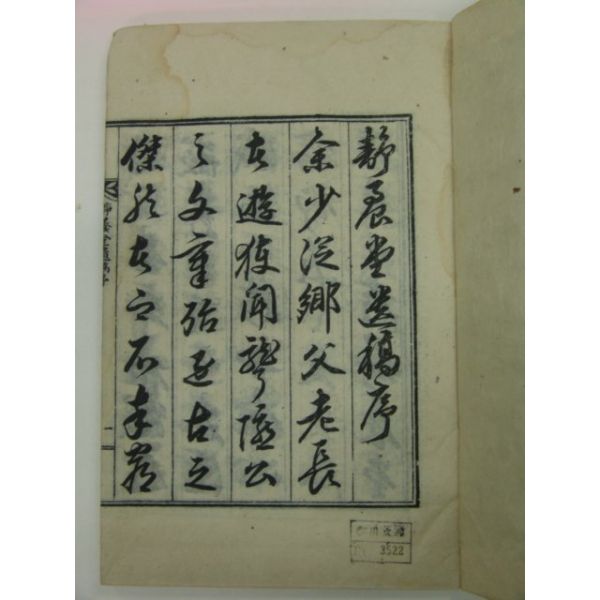 靜養堂遺稿序
余少從鄉父老長
者遊獲聞聾隱公
之文章殆近古之
傑然者而不幸
一
3522